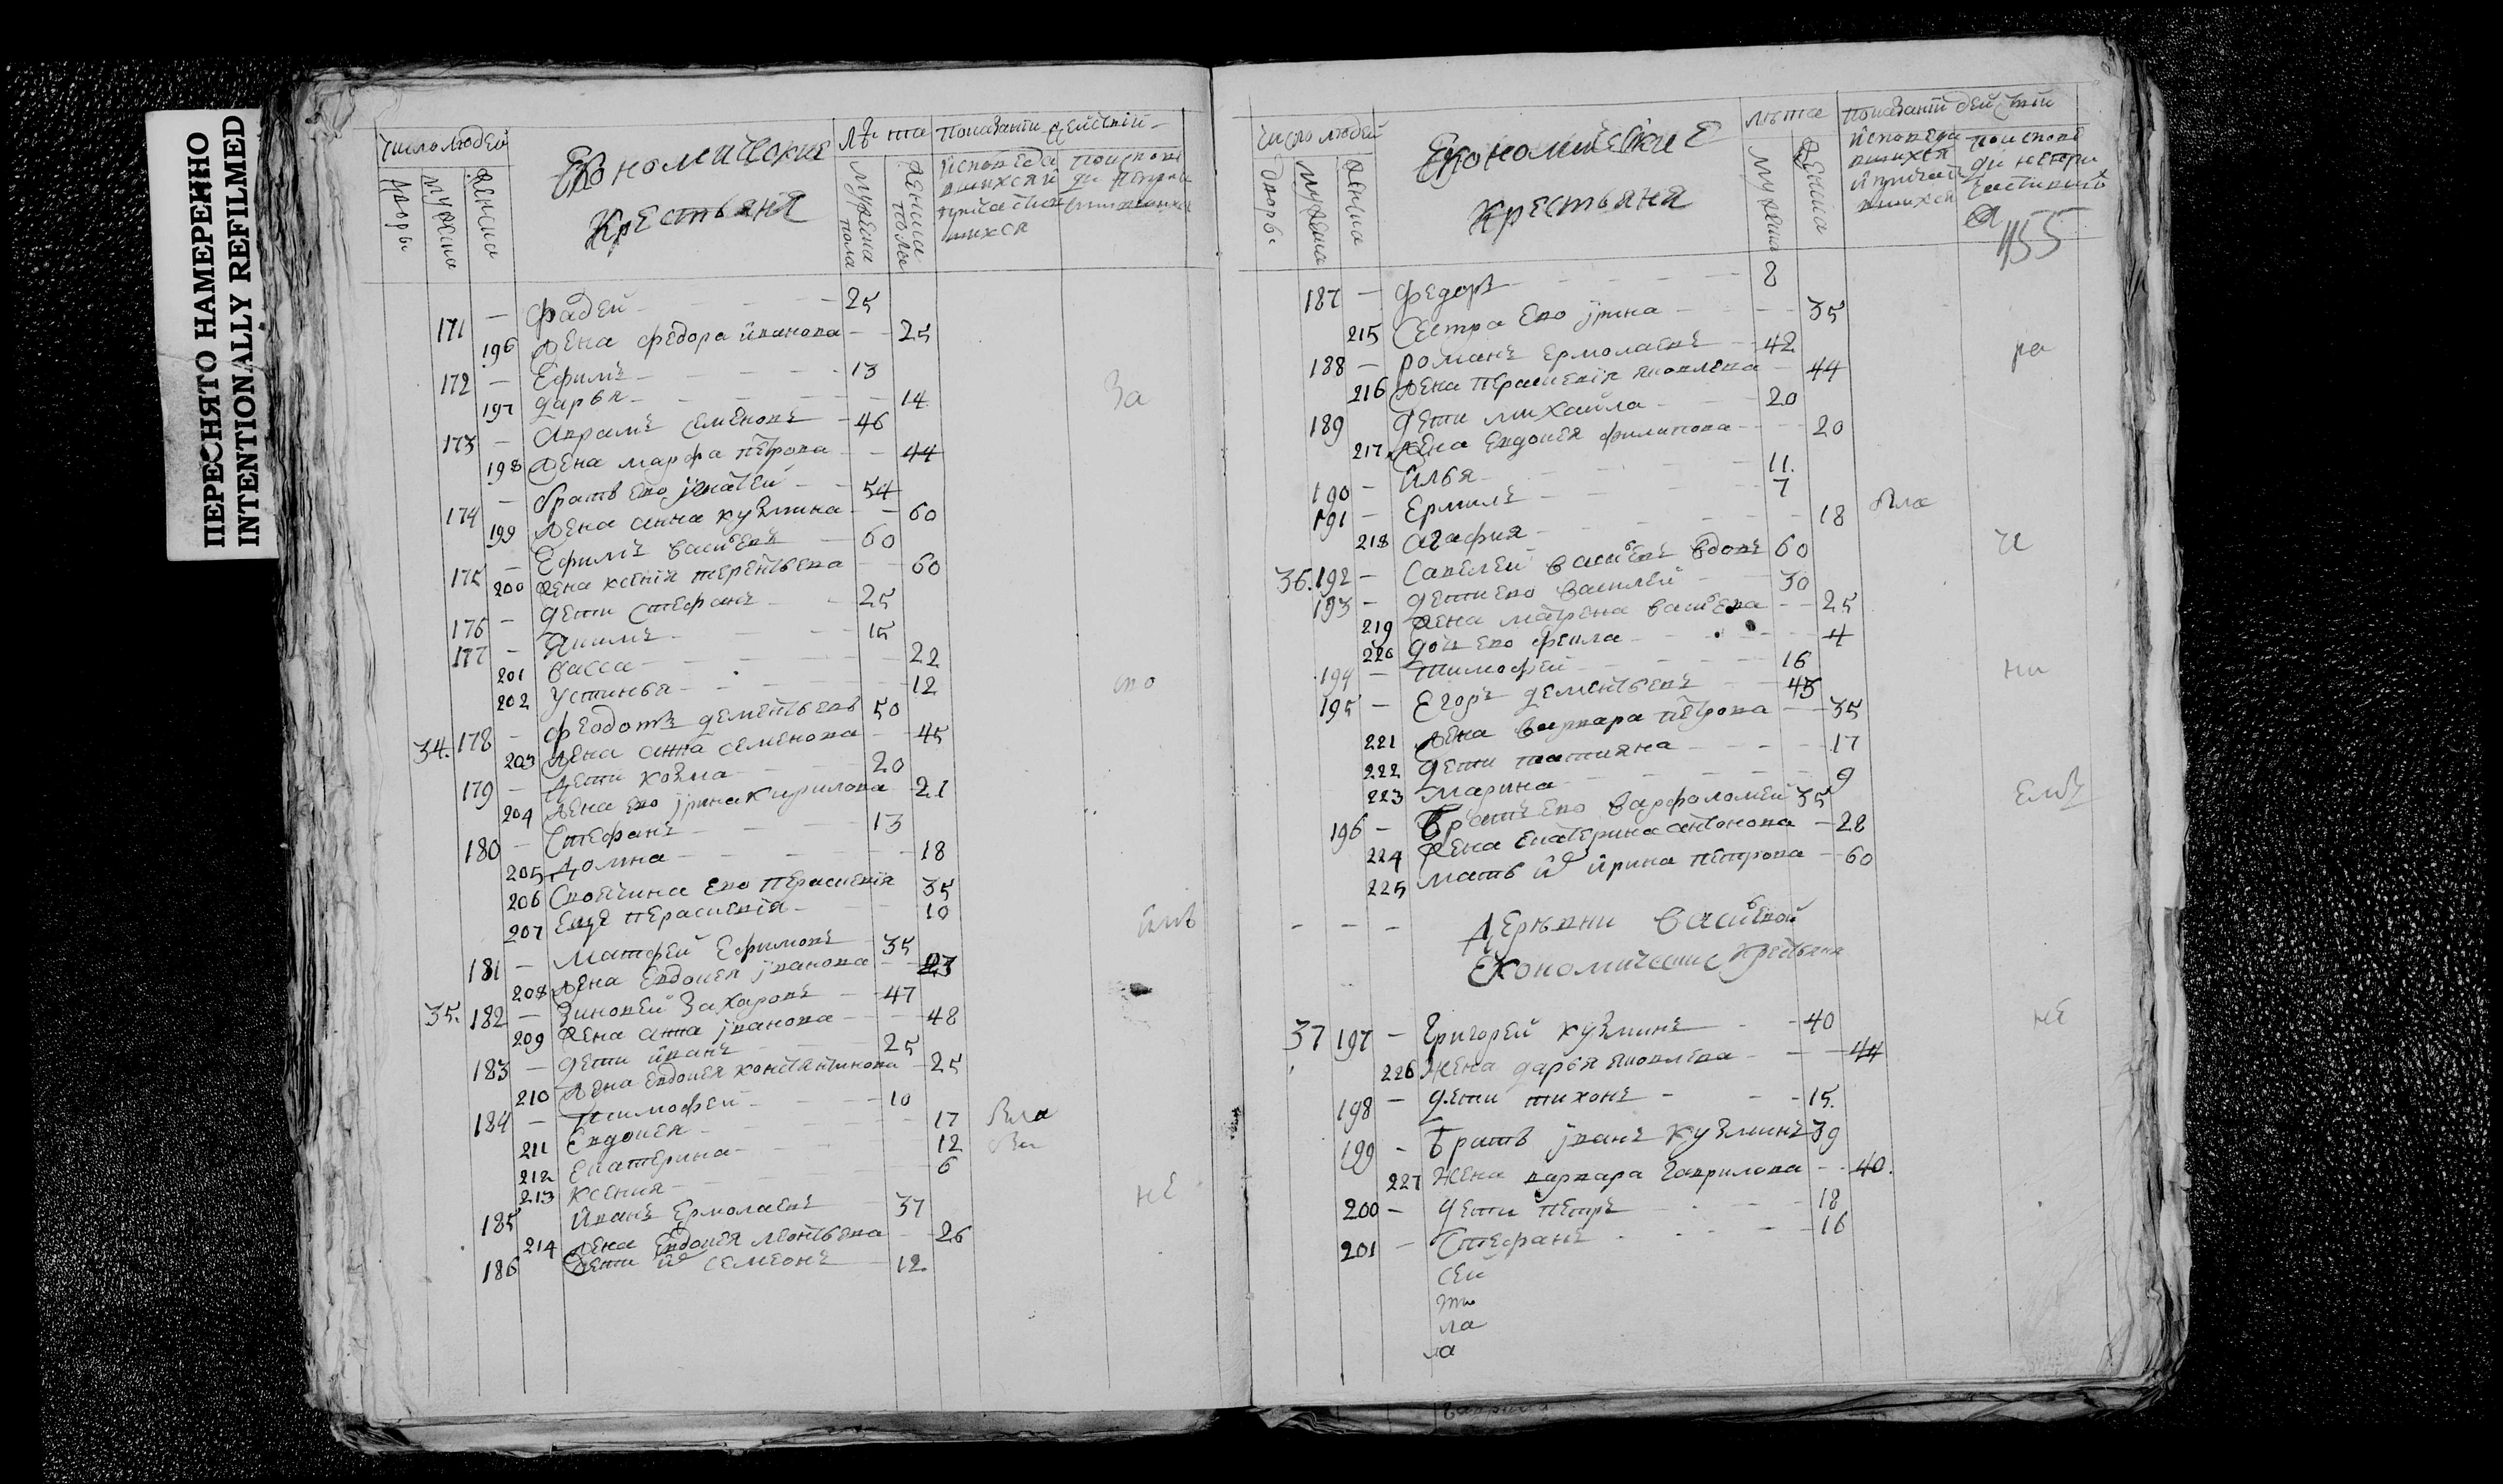 ПЕРЕСНЯТО НАМЕРЕННО
INTENTIONALLY REFILMED
число людей
дворы
мужеска
женска
Економические
крестьяня
лѣта
мужеска пола
женска пола
показание действий
171 — фадей 25
196 жена федора иванова 25
172 — Ефимъ 13
197 дарья 14
173 — Аврамъ семеновъ 46
198 жена марфа петрова 44
174 — братъ ево игнатей 54
199 жена анна кузмина 60
175 — Ефимъ васильевъ 60
200 жена ксения терентьева 60
176 — дети стефанъ 25
177 — Якимъ 15
201 васса 22
202 устинья 12
34. 178 — феодотъ дементьевъ 50
203 жена анна семенова 45
179 — дети козма 20
204 жена ево ирина кирилова 21
180 — Стефанъ 13
205 домна 18
206 своячина ево перасковия 35
207 еще перасковия 10
181 — Матфей Ефимовъ 35
208 жена Евдокея иванова
35. 182 — Зиновей Захаровъ 47
209 жена анна иванова 48
183 — дети иванъ 25
210 жена евдокея константинова 25
184 — тимофей 10
211 Евдокея 17
212 Екатерина 12
213 ксения 6
185 иванъ Ермолаевъ 37
214 жена Евдокея леонтьева 26
186 дети их семеонъ 12
За
по
не
число людей
дворы
мужеска
женска
Економические
крестьяня
лѣта
мужеска
женска
показание действий
155
187 — федоръ 8
215 сестра ево ирина 35
188 — романъ ермолаевъ 42
216 жена перасковия яковлева 44
189 дети михаила 20
217 жена Евдокея филипова 20
190 — илья 11.
191 — Ермилъ 7
218 агафия 18
36. 192 — савелей васильевъ вдовъ 60
193 — дети ево василей 30
219 жена матрена васильева 25
220 дочь ево фекла 4
194 — тимофей 16
195 — Егоръ дементьевъ 45
221 жена варвара петрова 35
222 дети татияна 17
223 Марина 9
196 — братъ ево варфоломей 35
224 жена екатерина антонова 28
225 мать их ирина петрова 60
— — — деревни васильевой
Економические крестьяня
37 197 — григорей кузминъ 40
226 жена дарья яковлева 44
198 — дети тихонъ 15.
199 — братъ иванъ кузминъ 39
227 жена варвара гаврилова 40.
200 — дети петръ 18
201 — Стефанъ 16
сей
ла
а
ра
ни
не